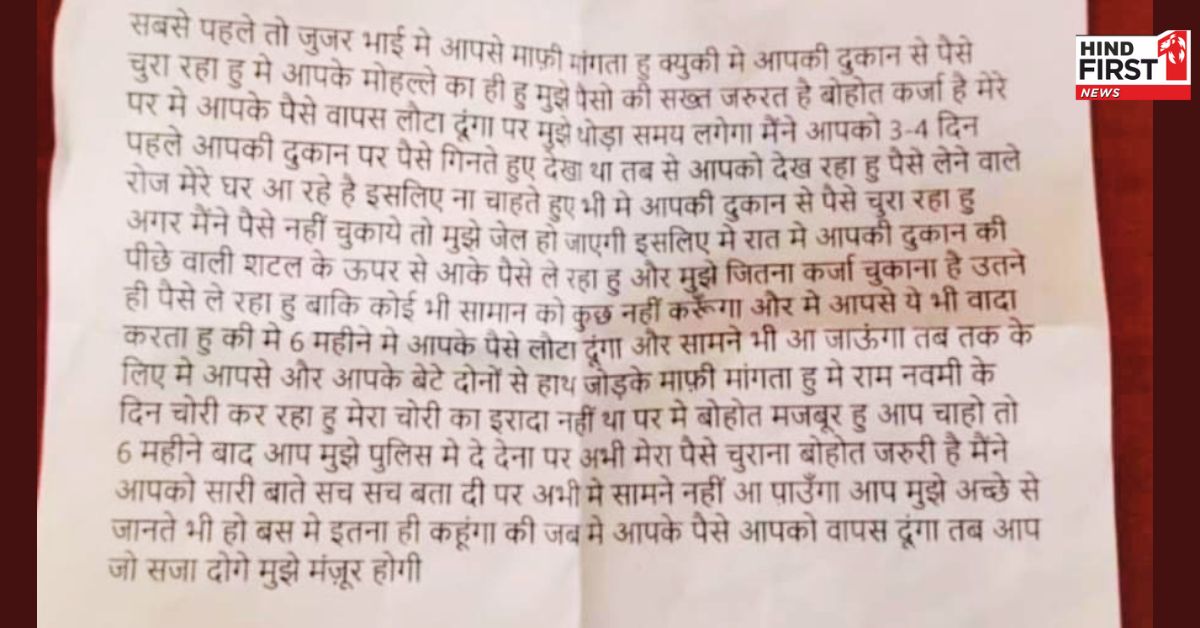 HIND
FIRST
NEWS
सबसे पहले तो जुजर भाई मे आपसे माफ़ी मांगता हु क्युकी मे आपकी दुकान से पैसे
चुरा रहा हु मे आपके मोहल्ले का ही हु मुझे पैसो की सख्त जरुरत है बोहोत कर्जा है मेरे
पर मे आपके पैसे वापस लौटा दूंगा पर मुझे थोड़ा समय लगेगा मैंने आपको 3-4 दिन
पहले आपकी दुकान पर पैसे गिनते हुए देखा था तब से आपको देख रहा हु पैसे लेने वाले
रोज मेरे घर आ रहे है इसलिए ना चाहते हुए भी मे आपकी दुकान से पैसे चुरा रहा हु
अगर मैंने पैसे नहीं चुकाये तो मुझे जेल हो जाएगी इसलिए मे रात मे आपकी दुकान की
पीछे वाली शटल के ऊपर से आके पैसे ले रहा हु और मुझे जितना कर्जा चुकाना है उतने
ही पैसे ले रहा हु बाकि कोई भी सामान को कुछ नहीं करूँगा और मे आपसे ये भी वादा
करता हु की मे 6 महीने मे आपके पैसे लौटा दूंगा और सामने भी आ जाऊंगा तब तक के
लिए मे आपसे और आपके बेटे दोनों से हाथ जोड़के माफ़ी मांगता हु मे राम नवमी के
दिन चोरी कर रहा हु मेरा चोरी का इरादा नहीं था पर मे बोहोत मजबूर हु आप चाहो तो
6 महीने बाद आप मुझे पुलिस मे दे देना पर अभी मेरा पैसे चुराना बोहोत जरुरी है मैंने
आपको सारी बाते सच सच बता दी पर अभी मे सामने नहीं आ पाउँगा आप मुझे अच्छे से
जानते भी हो बस मे इतना ही कहूंगा की जब मे आपके पैसे आपको वापस दूंगा तब आप
जो सजा दोगे मुझे मंज़ूर होगी